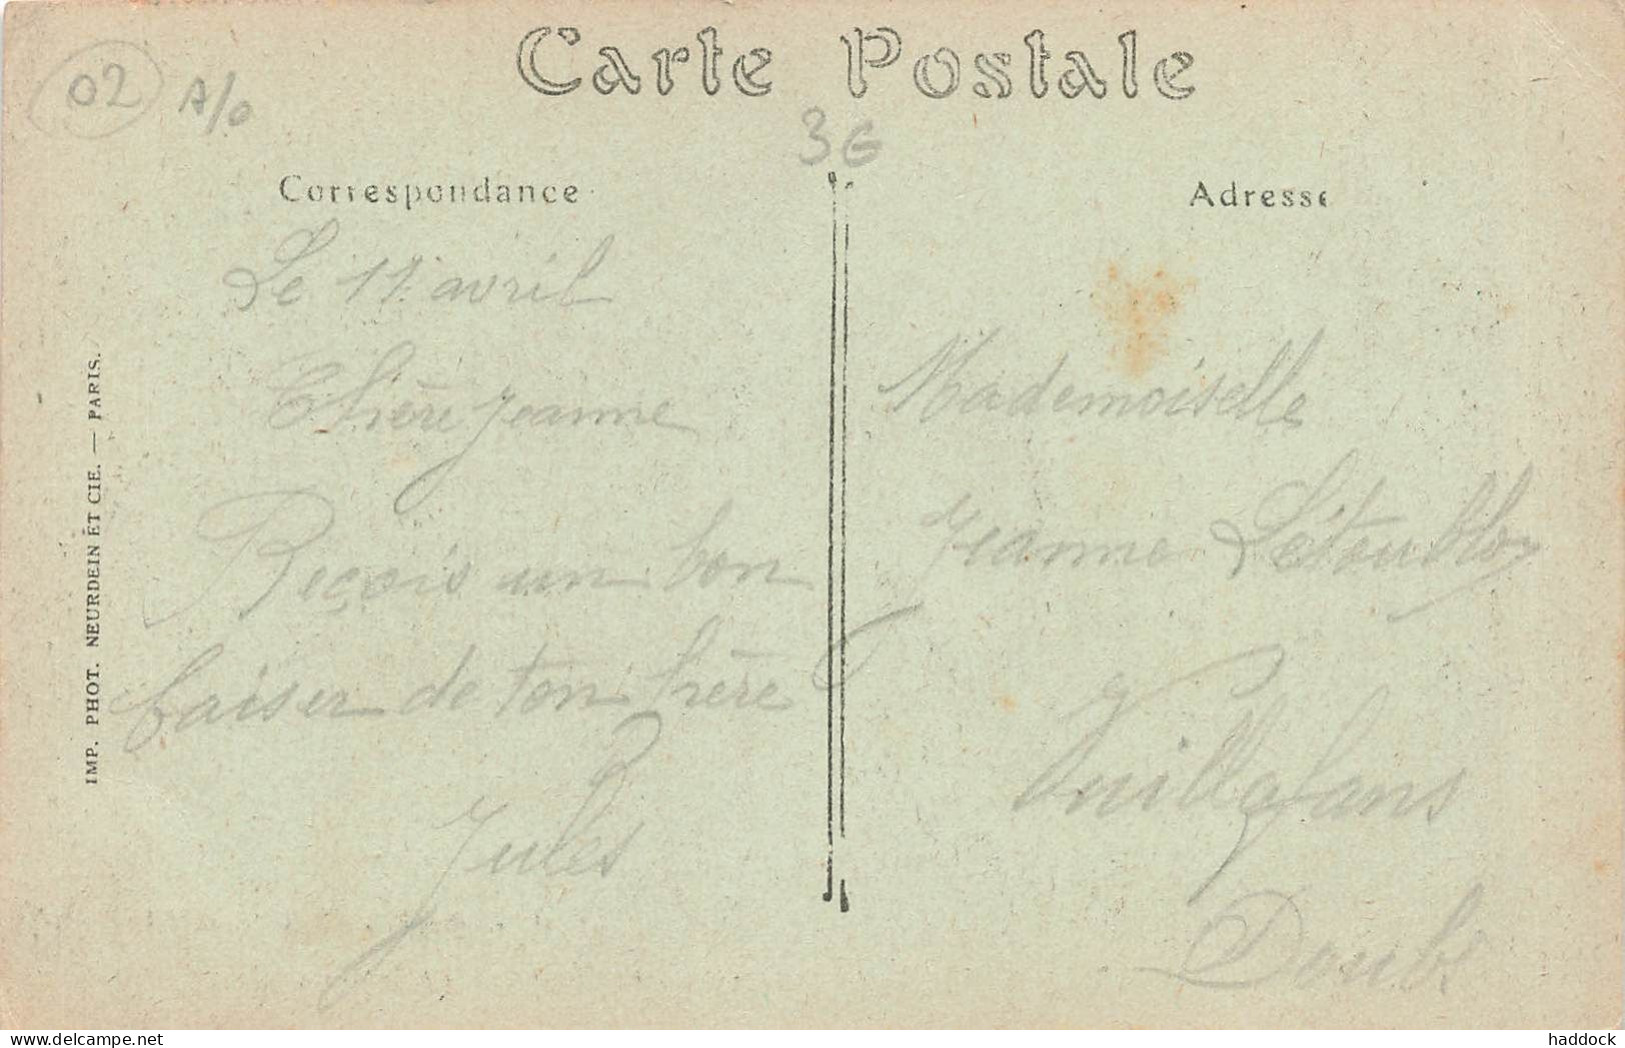 Carte Postale
02
A/0
3€
Correspondance
Adresse
Le 11 avril
Chère Jeanne
Reçois un bon
baiser de ton frère
Jules
Mademoiselle
Jeanne
Vuillafans
Doubs
IMP. PHOT. NEURDEIN ET CIE. — PARIS.
www.delcampe.net
haddock